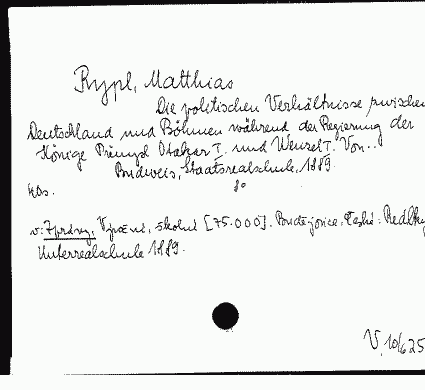 Rypl, Matthias
Die politischen Verhältnisse zwischen
Deutschland und Böhmen während der Regierung der
Könige Přemysl Otakar I. und Wenzel I. Von..
Budweis, Staatsrealschule, 1889.
8°
v: Zprávy, Výroční, školní [75.000]. Budějovice, České:
Unterrealschule 1889.
V, 10/625